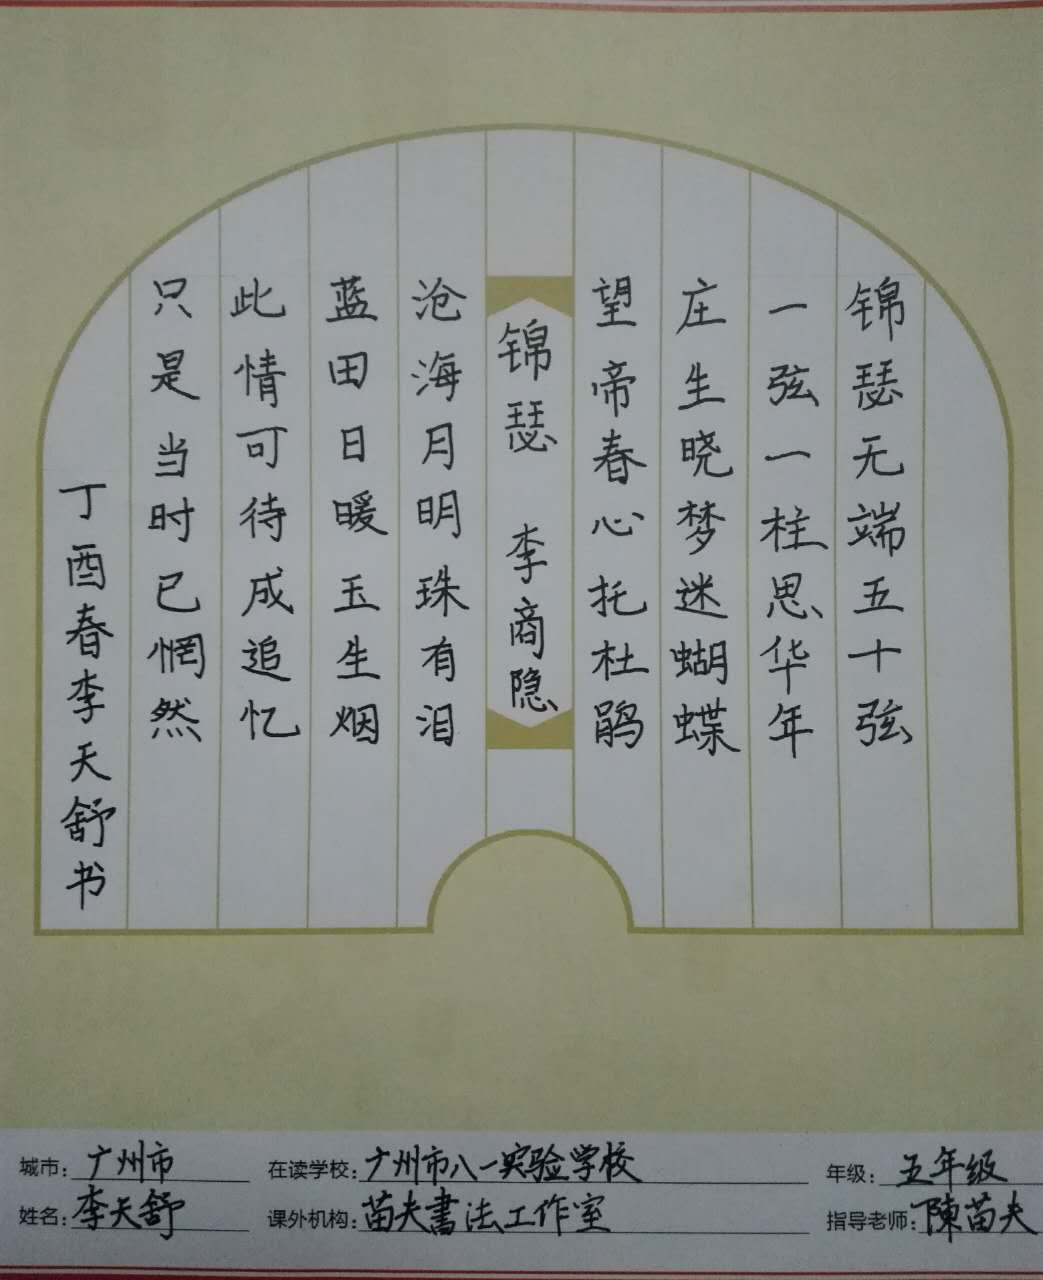 锦瑟无端五十弦
一弦一柱思华年
庄生晓梦迷蝴蝶
望帝春心托杜鹃
锦瑟 李商隐
沧海月明珠有泪
蓝田日暖玉生烟
此情可待成追忆
只是当时已惘然
丁酉春李天舒书
城市：广州市 在读学校：广州市八一实验学校 年级：五年级
姓名：李天舒 课外机构：苗夫書法工作室 指导老师：陳苗夫